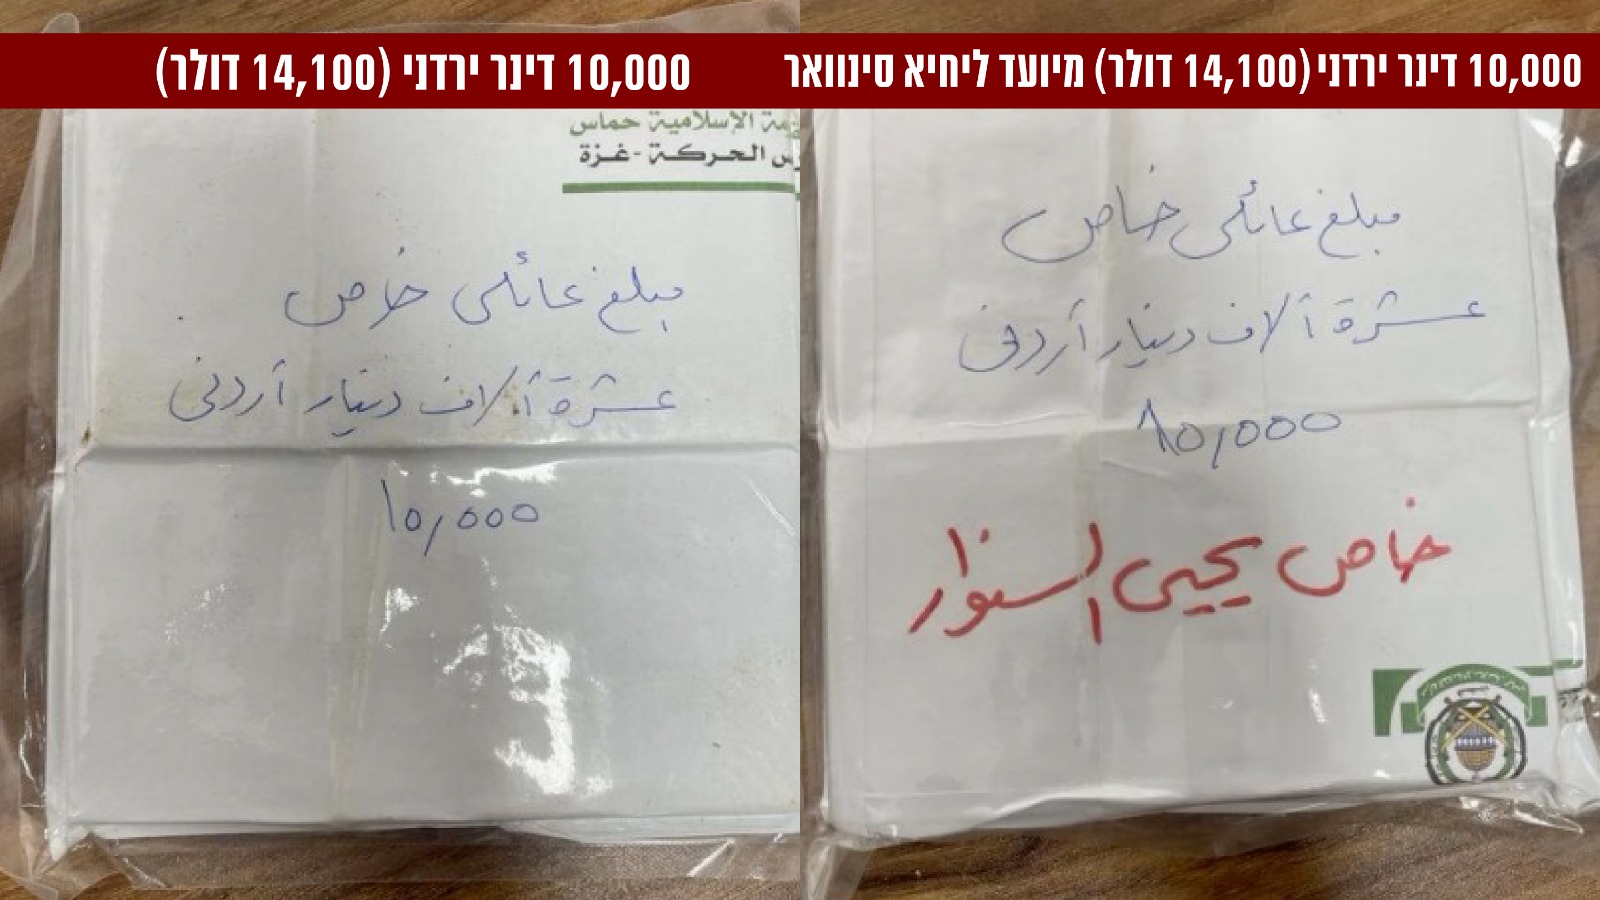 10,000 דינר ירדני (14,100 דולר) מיועד ליחיא סינוואר
مبلغ عائلي خاص
عشرة آلاف دينار أردني
10,000
خاص يحيى السنوار
10,000 דינר ירדני (14,100 דולר)
الإسلامية حماس
الحركة - غزة
مبلغ عائلي خاص
عشرة آلاف دينار أردني
١٥,٥٥٥